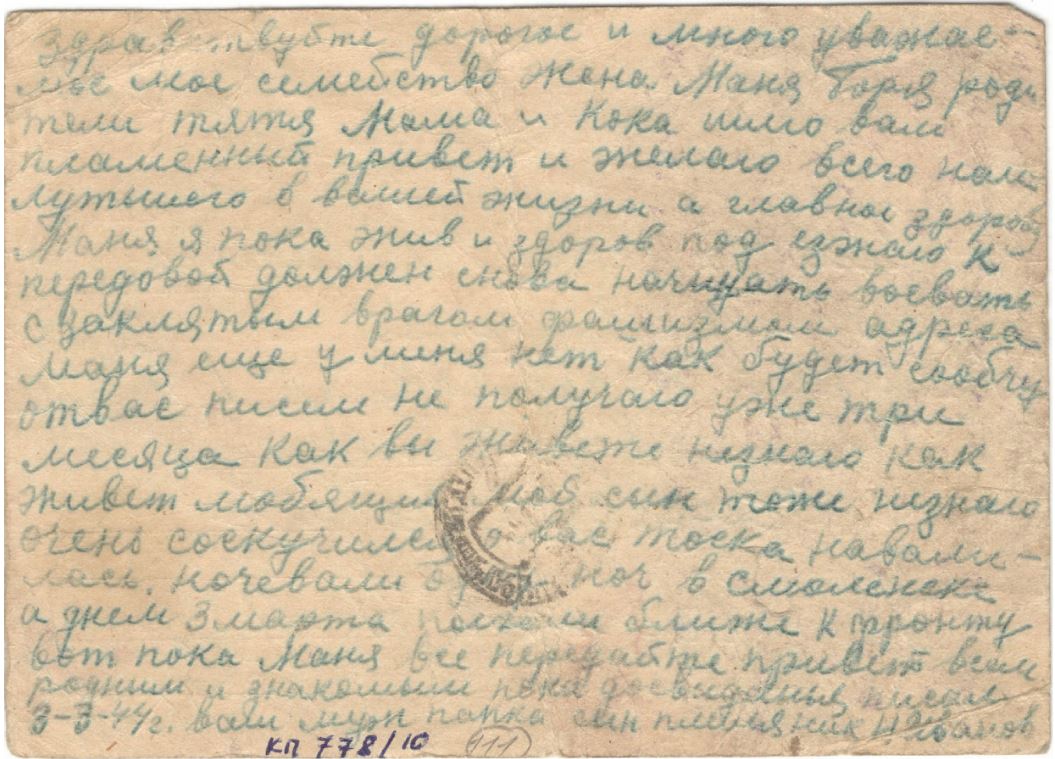 Здравствубте дорогое и много уважае-
мые мое семейство жена Маня Боря роди
тели тятя Мама и Кока шлю вам
пламенный привет и желаю всего наи
лутьшего в вашей жизни а главное здоров
Маня я пока жив и здоров под езжаю к
передовой должен снова начинать воевать
с заклятым врагом фашизмом адреса
Маня еще у меня нет как будет сообчу
отвас писем не получаю уже три
месяца как вы живете незнаю как
живет мой сын тоже незнаю
очень соскучился о вас тоска навали-
лась, ночевали ноч в смоленске
а днем 3 марта поехали ближе к фронту
вот пока Маня все передайте привет всем
родным и знакомым пока досвиданья писал
3-3-44г. ваш муж папка сын племяник Иванов
КП 778/10 (111)